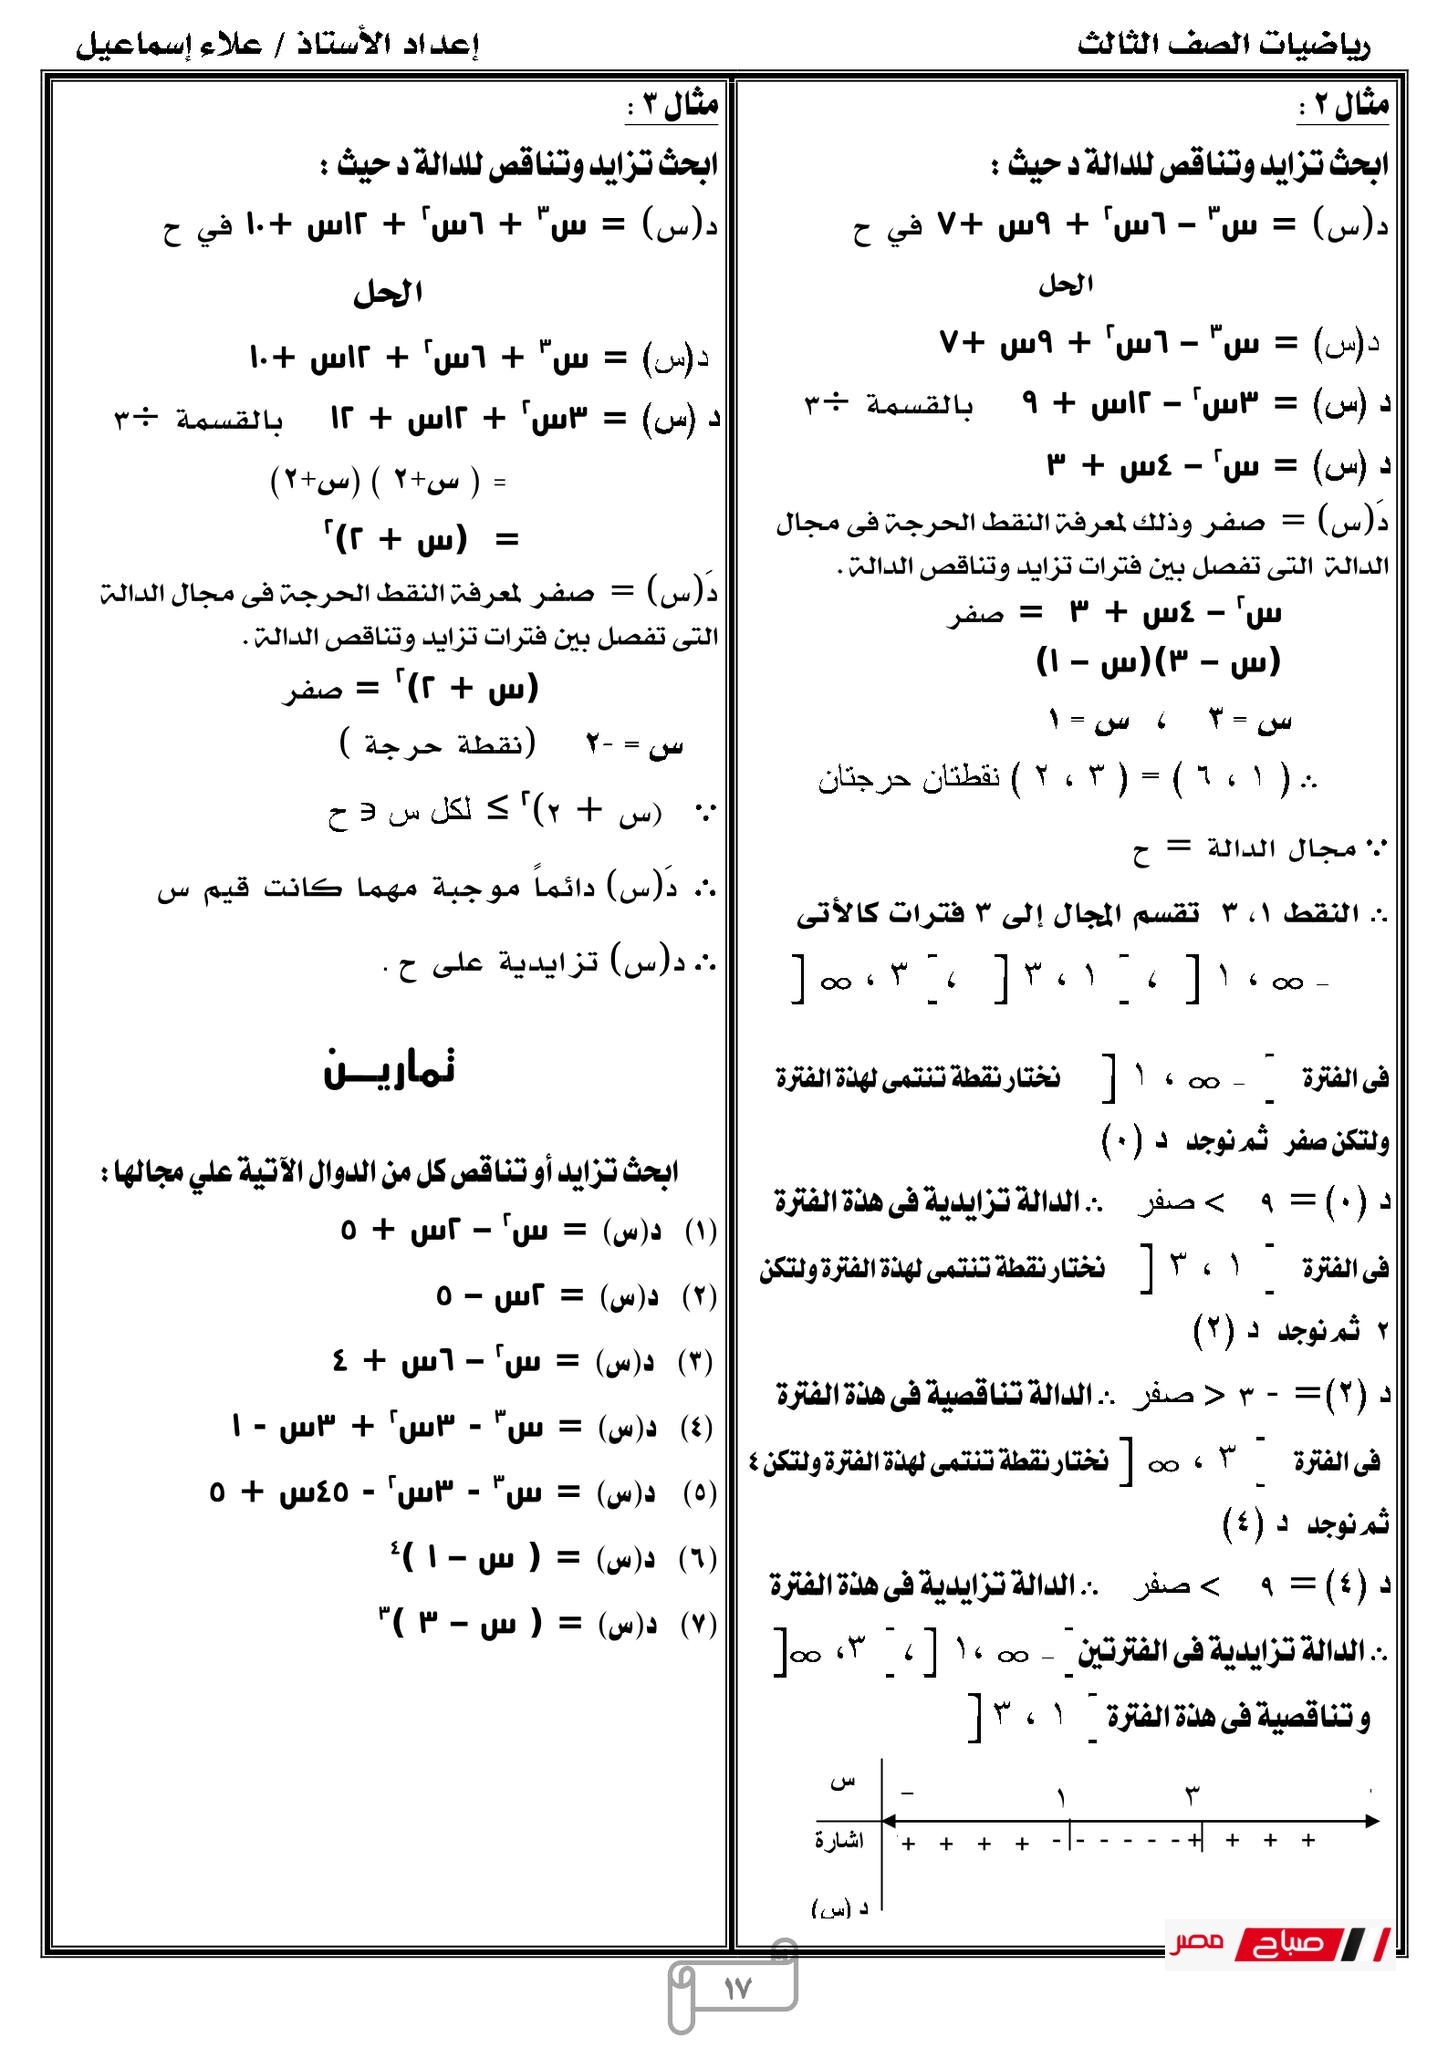 رياضيات الصف الثالث
إعداد الأستاذ / علاء إسماعيل
مثال ٢ :
ابحث تزايد وتناقص للدالة د حيث :
د(س) = س٣ – ٦س٢ + ٩س +٧ في ح
الحل
د(س) = س٣ – ٦س٢ + ٩س +٧
د (س) = ٣س٢ – ١٢س + ٩ بالقسمة ÷٣
د (س) = س٢ – ٤س + ٣
دَ(س) = صفر وذلك لمعرفة النقط الحرجة فى مجال
الدالة التى تفصل بين فترات تزايد وتناقص الدالة .
س٢ – ٤س + ٣ = صفر
(س – ٣)(س – ١)
س = ٣ ، س = ١
∴ ( ١ ، ٦ ) = ( ٣ ، ٢ ) نقطتان حرجتان
∵ مجال الدالة = ح
∴ النقط ١، ٣ تقسم المجال إلى ٣ فترات كالأتى
– ∞ ، ١ [ ، ] ١ ، ٣ [ ، ] ٣ ، ∞ [
فى الفترة ] – ∞ ، ١ [ نختار نقطة تنتمى لهذة الفترة
ولتكن صفر ثم نوجد د (٠)
د (٠) = ٩ > صفر ∴ الدالة تزايدية فى هذة الفترة
فى الفترة ] ١ ، ٣ [ نختار نقطة تنتمى لهذة الفترة ولتكن
٢ ثم نوجد د (٢)
د (٢) = - ٣ < صفر ∴ الدالة تناقصية فى هذة الفترة
فى الفترة ] ٣ ، ∞ [ نختار نقطة تنتمى لهذة الفترة ولتكن ٤
ثم نوجد د (٤)
د (٤) = ٩ > صفر ∴ الدالة تزايدية فى هذة الفترة
∴ الدالة تزايدية فى الفترتين ] – ∞ ،١ [ ، ] ٣، ∞[
و تناقصية فى هذة الفترة ] ١ ، ٣ [
س – ١ ٣
اشارة + + + + - - - - - - + + + +
د (س)
مثال ٣ :
ابحث تزايد وتناقص للدالة د حيث :
د(س) = س٣ + ٦س٢ + ١٢س +١٠ في ح
الحل
د(س) = س٣ + ٦س٢ + ١٢س +١٠
د (س) = ٣س٢ + ١٢س + ١٢ بالقسمة ÷٣
= ( س+٢ ) (س+٢)
= (س + ٢)٢
دَ(س) = صفر لمعرفة النقط الحرجة فى مجال الدالة
التى تفصل بين فترات تزايد وتناقص الدالة .
(س + ٢)٢ = صفر
س = -٢ (نقطة حرجة )
∵ (س + ٢)٢ ≥ لكل س ∈ ح
∴ دَ(س) دائماً موجبة مهما كانت قيم س
∴ د(س) تزايدية على ح .
تماريـــن
ابحث تزايد أو تناقص كل من الدوال الآتية علي مجالها :
(١) د(س) = س٢ – ٢س + ٥
(٢) د(س) = ٢س – ٥
(٣) د(س) = س٢ – ٦س + ٤
(٤) د(س) = س٣ - ٣س٢ + ٣س - ١
(٥) د(س) = س٣ - ٣س٢ - ٤٥س + ٥
(٦) د(س) = ( س – ١ )٤
(٧) د(س) = ( س – ٣ )٣
صباح مصر
١٧